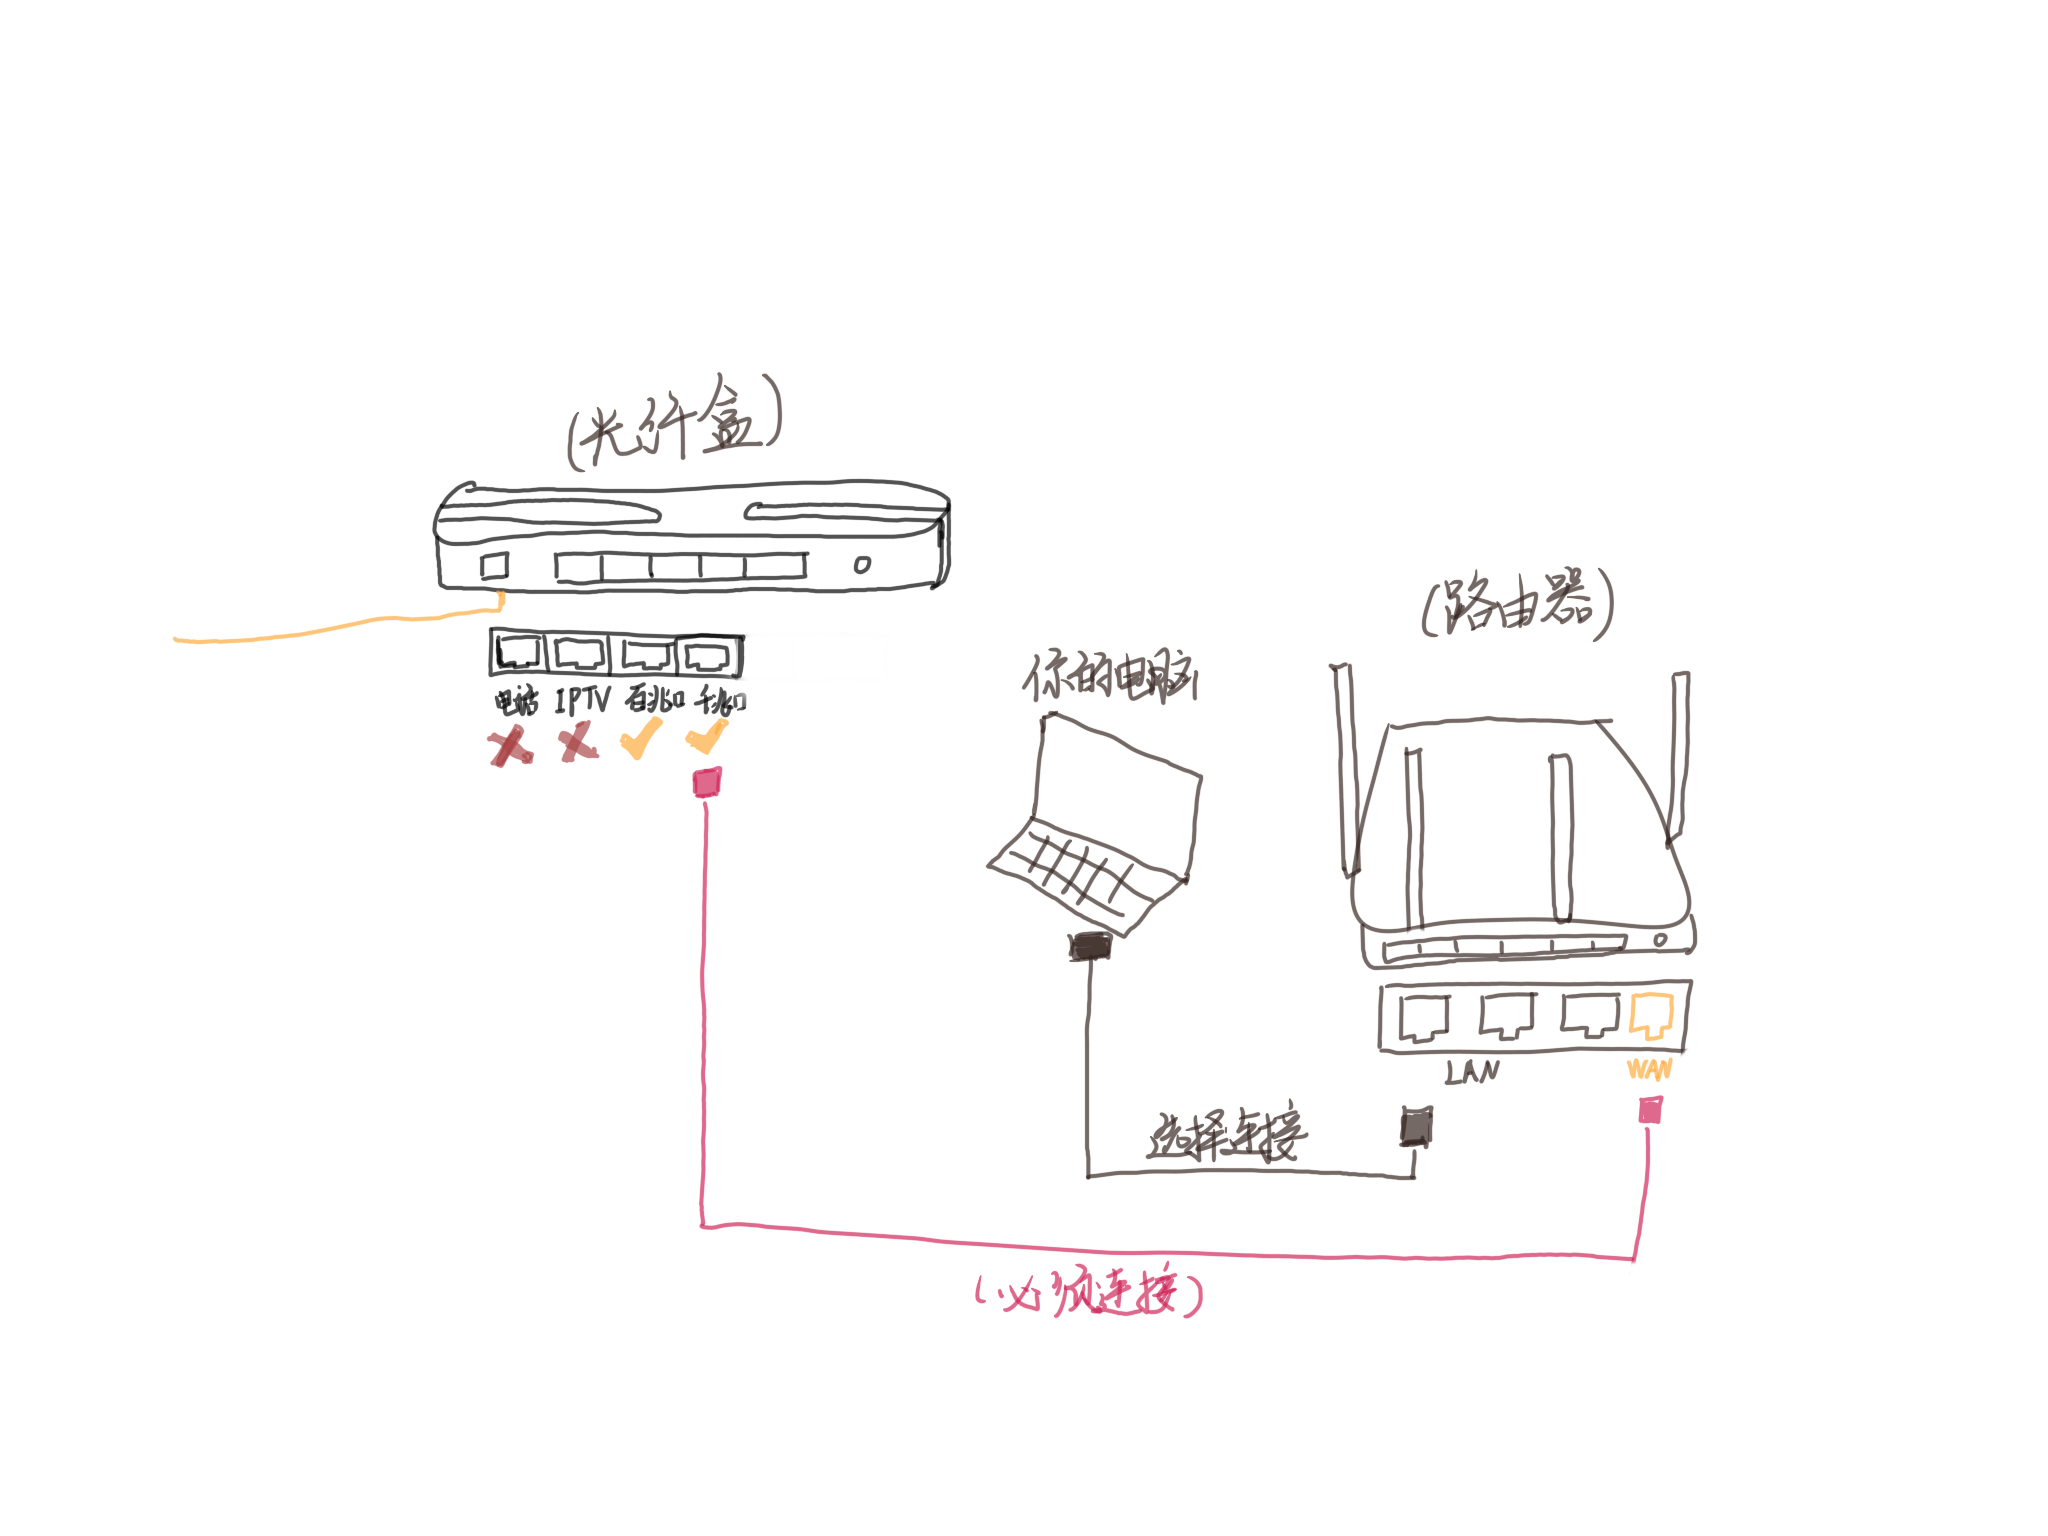 (光纤盒)
电话 IPTV 百兆口 千兆口
你的电脑
(路由器)
LAN WAN
选择连接
(必须连接)